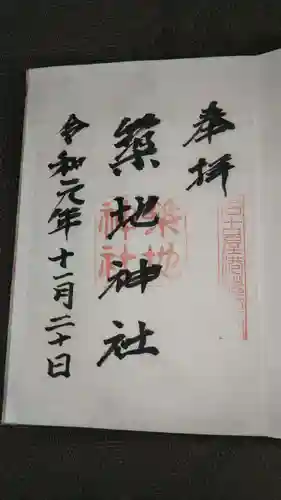 奉拝
築地神社
築地
神社
令和元年十一月二十日